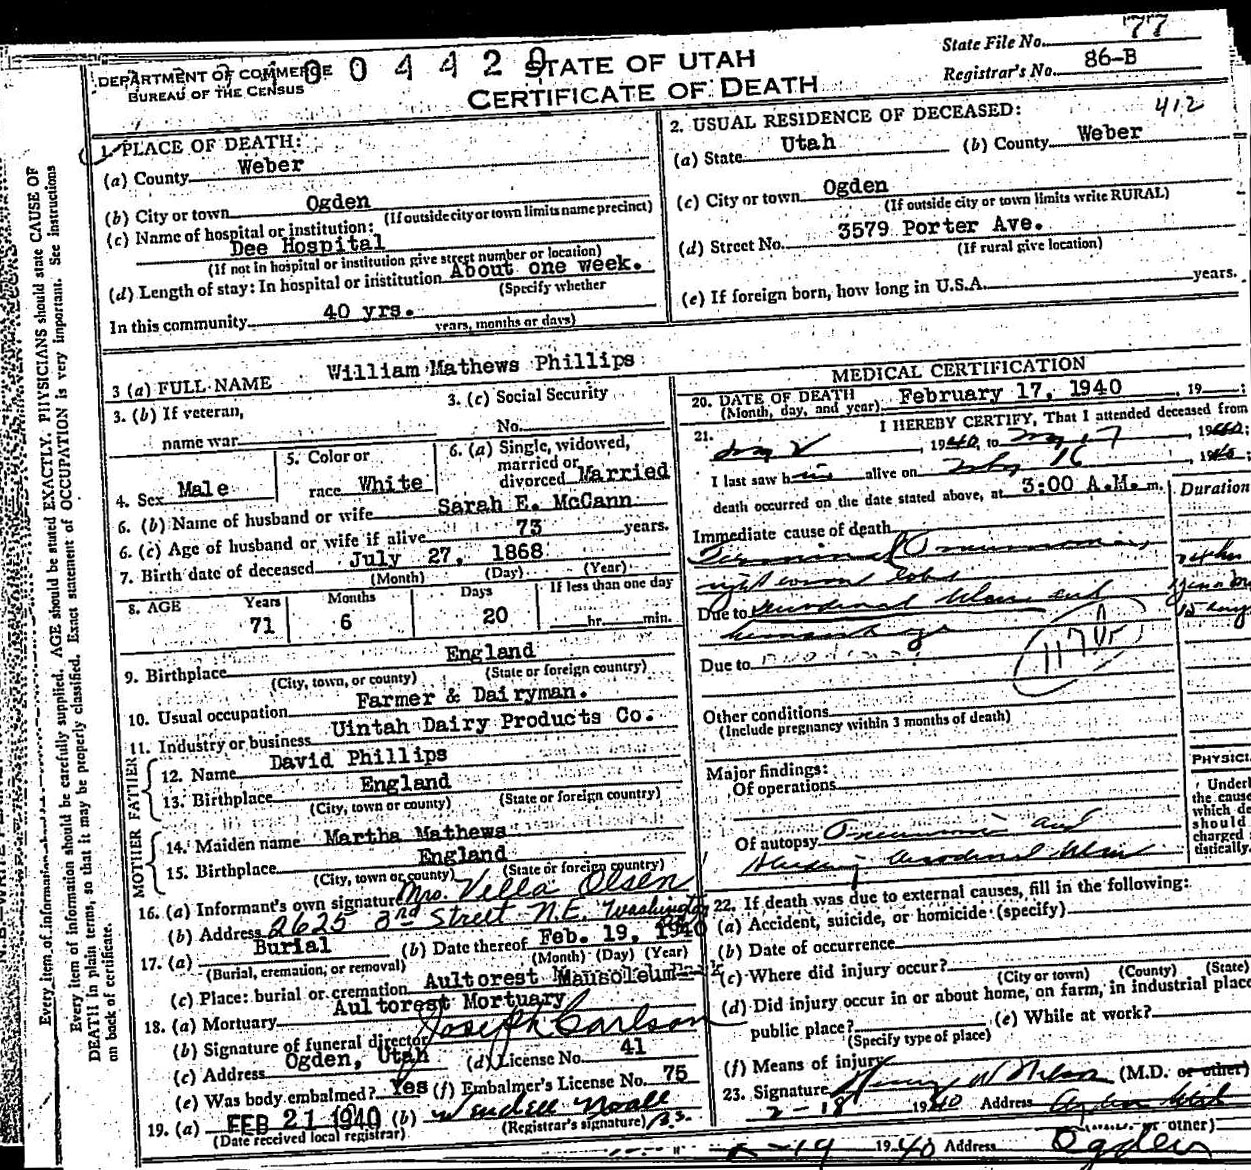 State File No. 77
DEPARTMENT OF COMMERCE
BUREAU OF THE CENSUS
004420
STATE OF UTAH
CERTIFICATE OF DEATH
Registrar's No. 86-B
412
1. PLACE OF DEATH:
(a) County Weber
(b) City or town Ogden
(If outside city or town limits name precinct)
(c) Name of hospital or institution:
Dee Hospital
(If not in hospital or institution give street number or location)
(d) Length of stay: In hospital or institution About one week.
(Specify whether
In this community 40 yrs.
years, months or days)
2. USUAL RESIDENCE OF DECEASED:
(a) State Utah (b) County Weber
(c) City or town Ogden
(If outside city or town limits write RURAL)
(d) Street No. 3579 Porter Ave.
(If rural give location)
(e) If foreign born, how long in U.S.A. years.
3 (a) FULL NAME William Mathews Phillips
3. (b) If veteran,
name war
3. (c) Social Security
No.
4. Sex Male
5. Color or
race White
6. (a) Single, widowed,
married or
divorced Married
6. (b) Name of husband or wife Sarah E. McCann
6. (c) Age of husband or wife if alive 73 years.
7. Birth date of deceased July 27, 1868
(Month) (Day) (Year)
8. AGE Years Months Days If less than one day
71 6 20 hr. min.
9. Birthplace England
(City, town, or county) (State or foreign country)
10. Usual occupation Farmer & Dairyman.
11. Industry or business Uintah Dairy Products Co.
FATHER
12. Name David Phillips
13. Birthplace England
(City, town or county) (State or foreign country)
MOTHER
14. Maiden name Martha Mathews
15. Birthplace England
(City, town or county) (State or foreign country)
16. (a) Informant's own signature Mrs. Vella Olsen
(b) Address 2625 3rd Street N.E. Washington
17. (a) Burial (b) Date thereof Feb. 19, 1940
(Burial, cremation, or removal) (Month) (Day) (Year)
(c) Place: burial or cremation Aultorest Mausoleum
18. (a) Mortuary Aultorest Mortuary
(b) Signature of funeral director Joseph Carlson
(c) Address Ogden, Utah (d) License No. 41
(e) Was body embalmed? Yes (f) Embalmer's License No. 75
19. (a) FEB 21 1940 (b) Wendell Noall
(Date received local registrar) (Registrar's signature)
MEDICAL CERTIFICATION
20. DATE OF DEATH February 17, 1940, 19 ;
(Month, day, and year)
21. I HEREBY CERTIFY, That I attended deceased from
, 1940, to 17, 1940;
I last saw him alive on 16, 1940;
death occurred on the date stated above, at 3:00 A.M. m. Duration
Immediate cause of death
Terminal Pneumonia,
right lobe
Due to duodenal ulcer and
hemorrhage
Due to
Other conditions
(Include pregnancy within 3 months of death)
Major findings:
Of operations
Of autopsy Pneumonia and
Bleeding duodenal ulcer
PHYSICI
Underl
the cause
which de
should
charged
tistically.
22. If death was due to external causes, fill in the following:
(a) Accident, suicide, or homicide (specify)
(b) Date of occurrence
(c) Where did injury occur?
(City or town) (County) (State)
(d) Did injury occur in or about home, on farm, in industrial place
public place? (e) While at work?
(Specify type of place)
(f) Means of injury
23. Signature (M.D. or other)
2-18 1940 Address Ogden Utah
or other)
19 1940 Address Ogden
Every item of information should be carefully supplied. AGE should be stated EXACTLY. PHYSICIANS should state CAUSE OF
DEATH in plain terms, so that it may be properly classified. Exact statement of OCCUPATION is very important. See Instructions
on back of certificate.